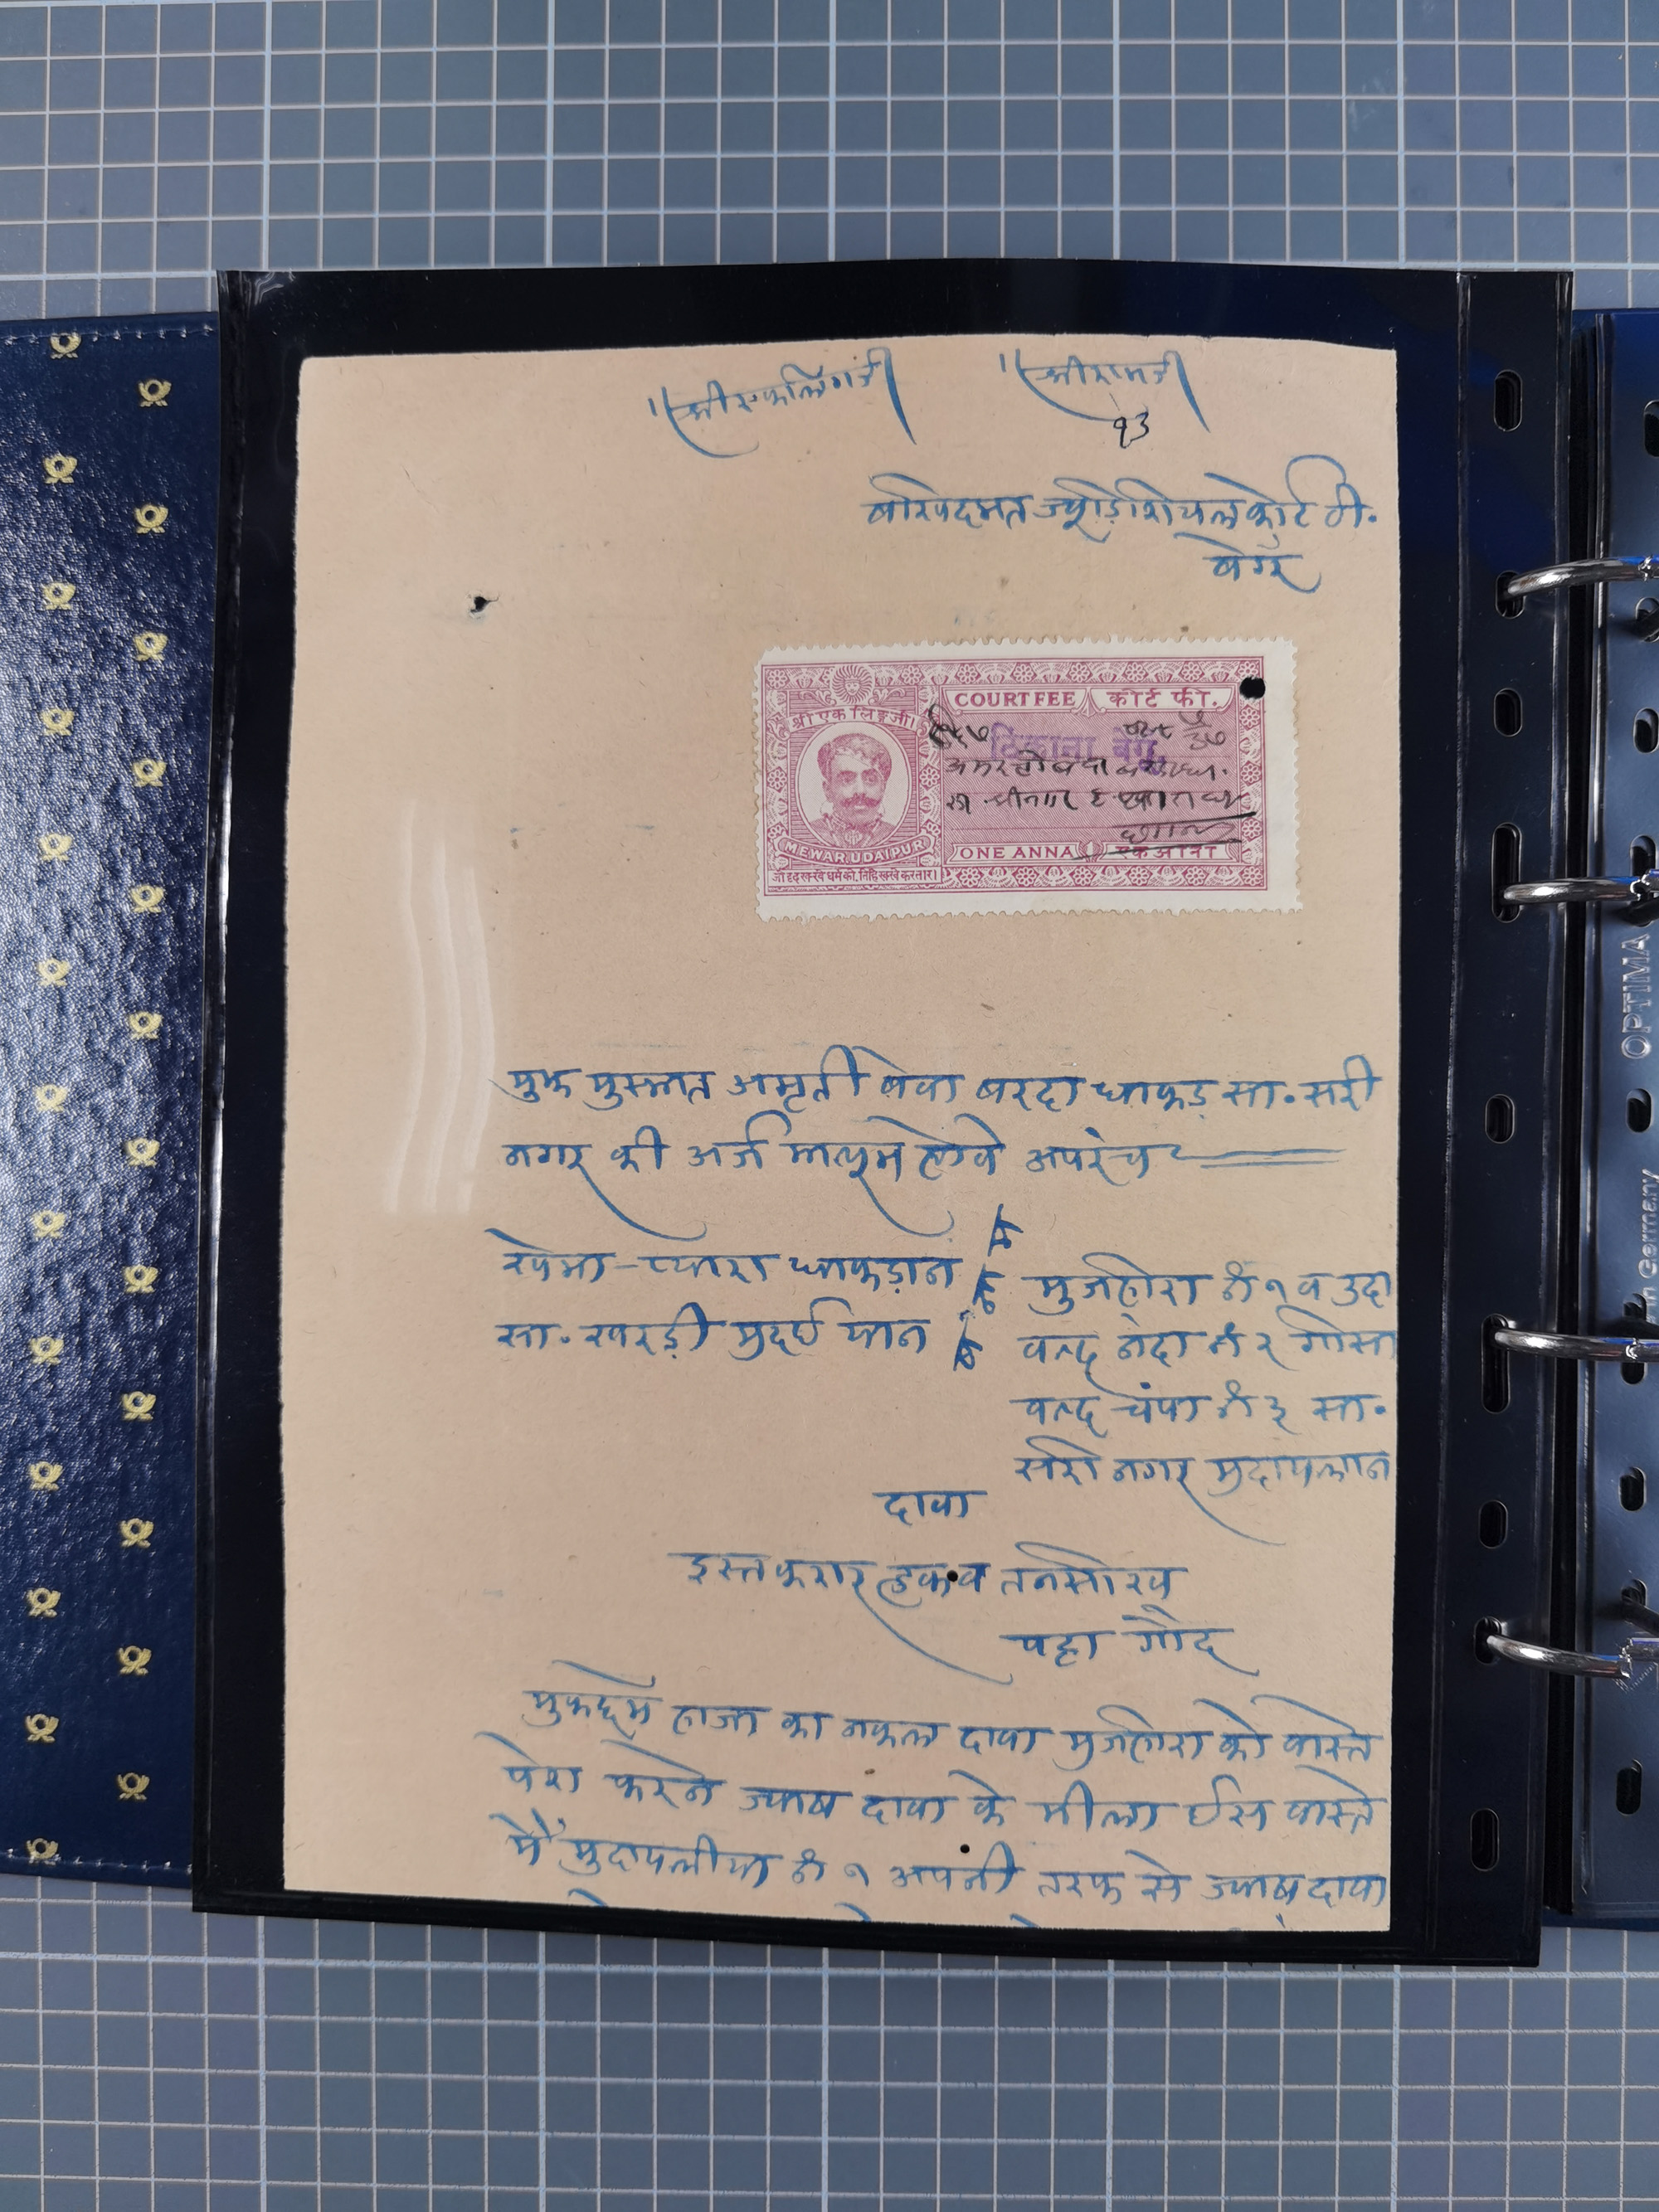 श्रीएकलिंगजी
श्रीरामजी
१३
बखिदमत ज्यूडीशियल कोर्ट ठी.
बेगूं
COURT FEE कोर्ट फी.
श्री एक लिङ्गजी।
ठिकाना बेगू
MEWAR. UDAIPUR
ONE ANNA 1 एक आना
जो दृढ रक्खे धर्म को, तिहि रक्खे करतार।
मुझ मुस्मात अमृती बेवा बरदा धाकड़ सा. सरी
नगर की अर्ज मालूम होवे अपरंच
खेमा प्यारा धाकड़ान
सा. खरड़ी मुदई यान
मुजहीरा नं १ व उदा
वल्द नंदा नं २ गोमा
वल्द चंपा नं ३ सा.
सरी नगर मुदायलान
दावा
इस्तकरार हक व तनसीख
पट्टा गोद
मुकद्दमे हाजा का नकल दावा मुजहीरा को वास्ते
पेश करने ज्वाब दावा के मीला ईस वास्ते
मैं मुदायलीया नं १ अपनी तरफ से ज्वाब दावा
OPTIMA
in Germany